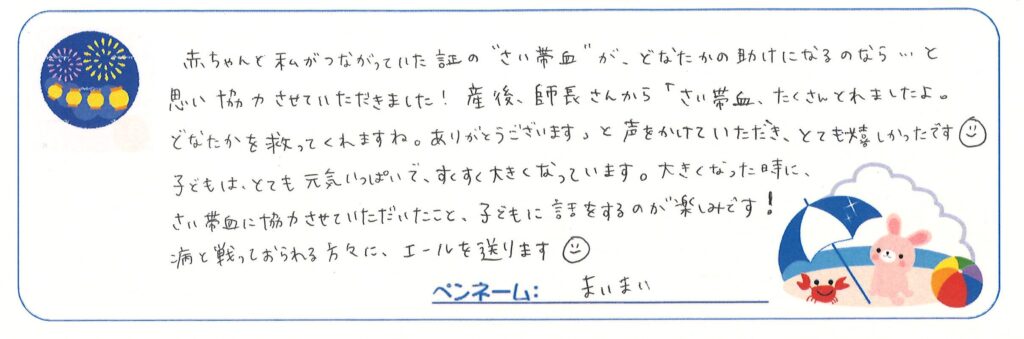 赤ちゃんと私がつながっていた証の"さい帯血"が、どなたかの助けになるのなら…と
思い協力させていただきました！産後、師長さんから「さい帯血、たくさんとれましたよ。
どなたかを救ってくれますね。ありがとうございます」と声をかけていただき、とても嬉しかったです
子どもは、とても元気いっぱいで、すくすく大きくなっています。大きくなった時に、
さい帯血に協力させていただいたこと、子どもに話をするのが楽しみです！
病と戦っておられる方々に、エールを送ります
ペンネーム： まいまい